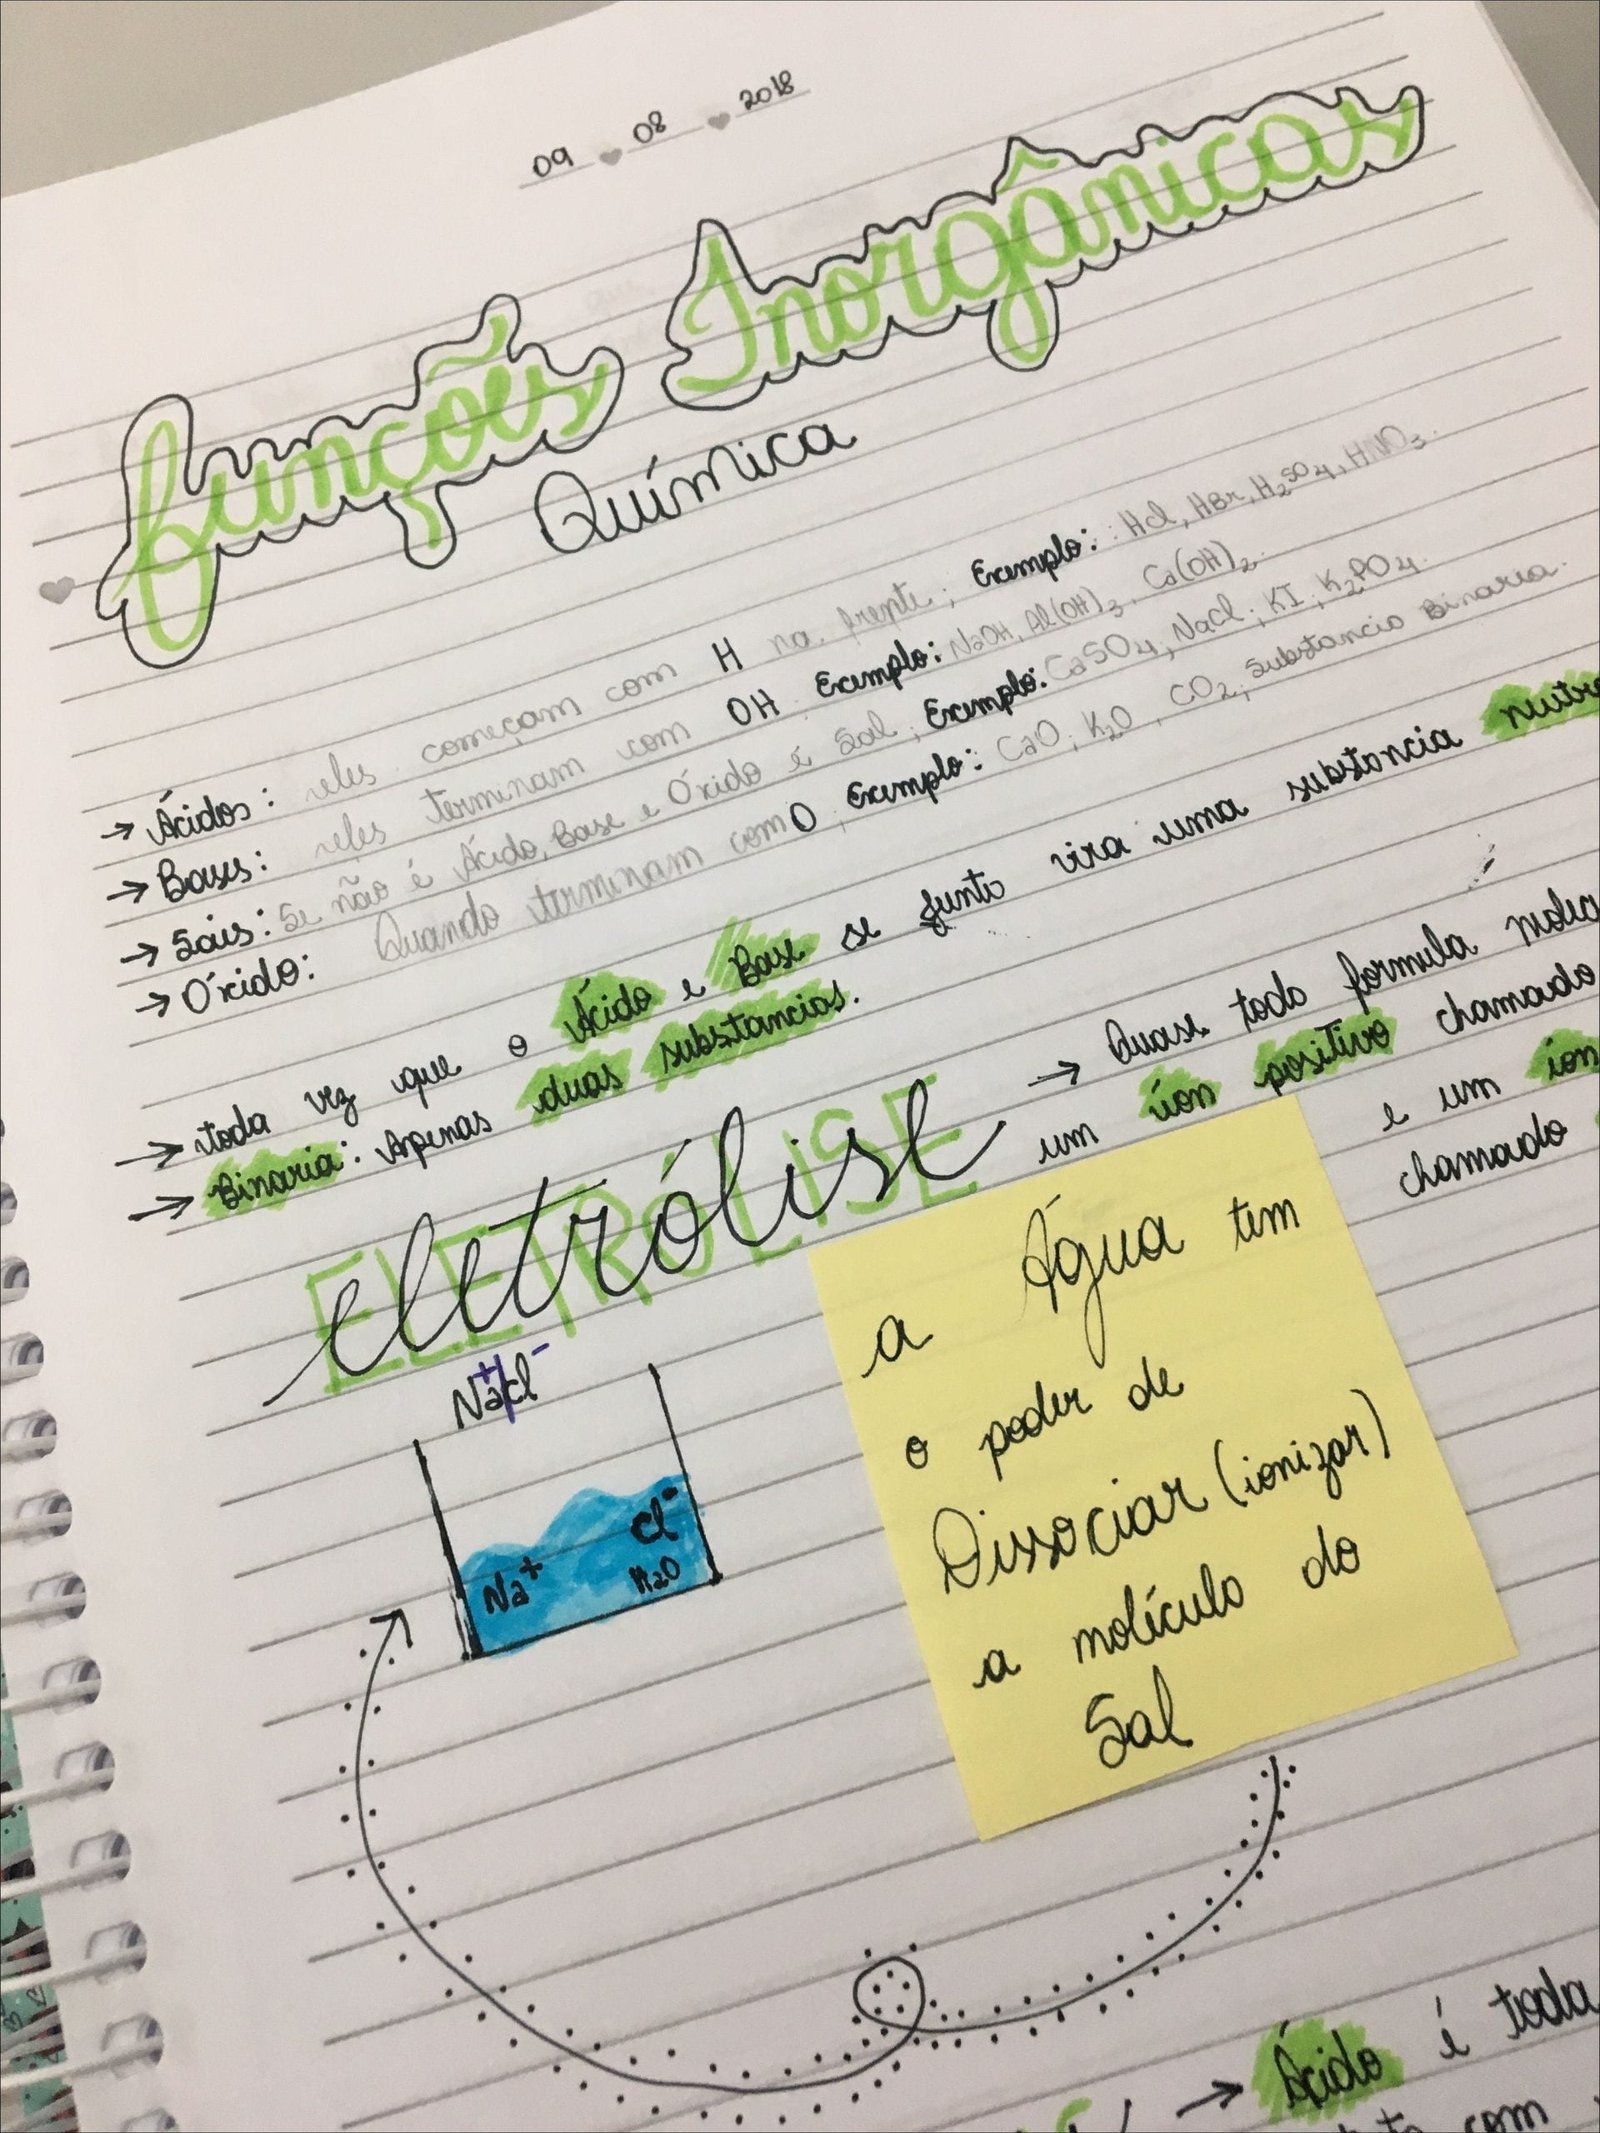 09 08 2018
Funções Inorgânicas
Química
→ Ácidos: eles começam com H na frente; Exemplo: HCl, HBr, H₂SO₄, HNO₃.
→ Bases: eles terminam com OH Exemplo: NaOH, Al(OH)₃, Ca(OH)₂.
→ Sais: Se não é Ácido, Base e Óxido é Sal; Exemplo: CaSO₄, NaCl; KI; K₂PO₄.
→ Óxido: Quando terminam com O; Exemplo: CaO; K₂O, CO₂; substancia Binaria.
→ toda vez que o Ácido e Base se junto vira uma substancia
→ Binaria: Apenas duas substancias.
eletrólise
ELETRÓLISE
→ Quase todo formula
um íon positivo chamado
e um íon
chamado
Na⁺Cl⁻
Na⁺ Cl⁻
H₂O
a Água tem
o poder de
Dissociar (ionizar)
a molículo do
Sal
→ Ácido é toda
com